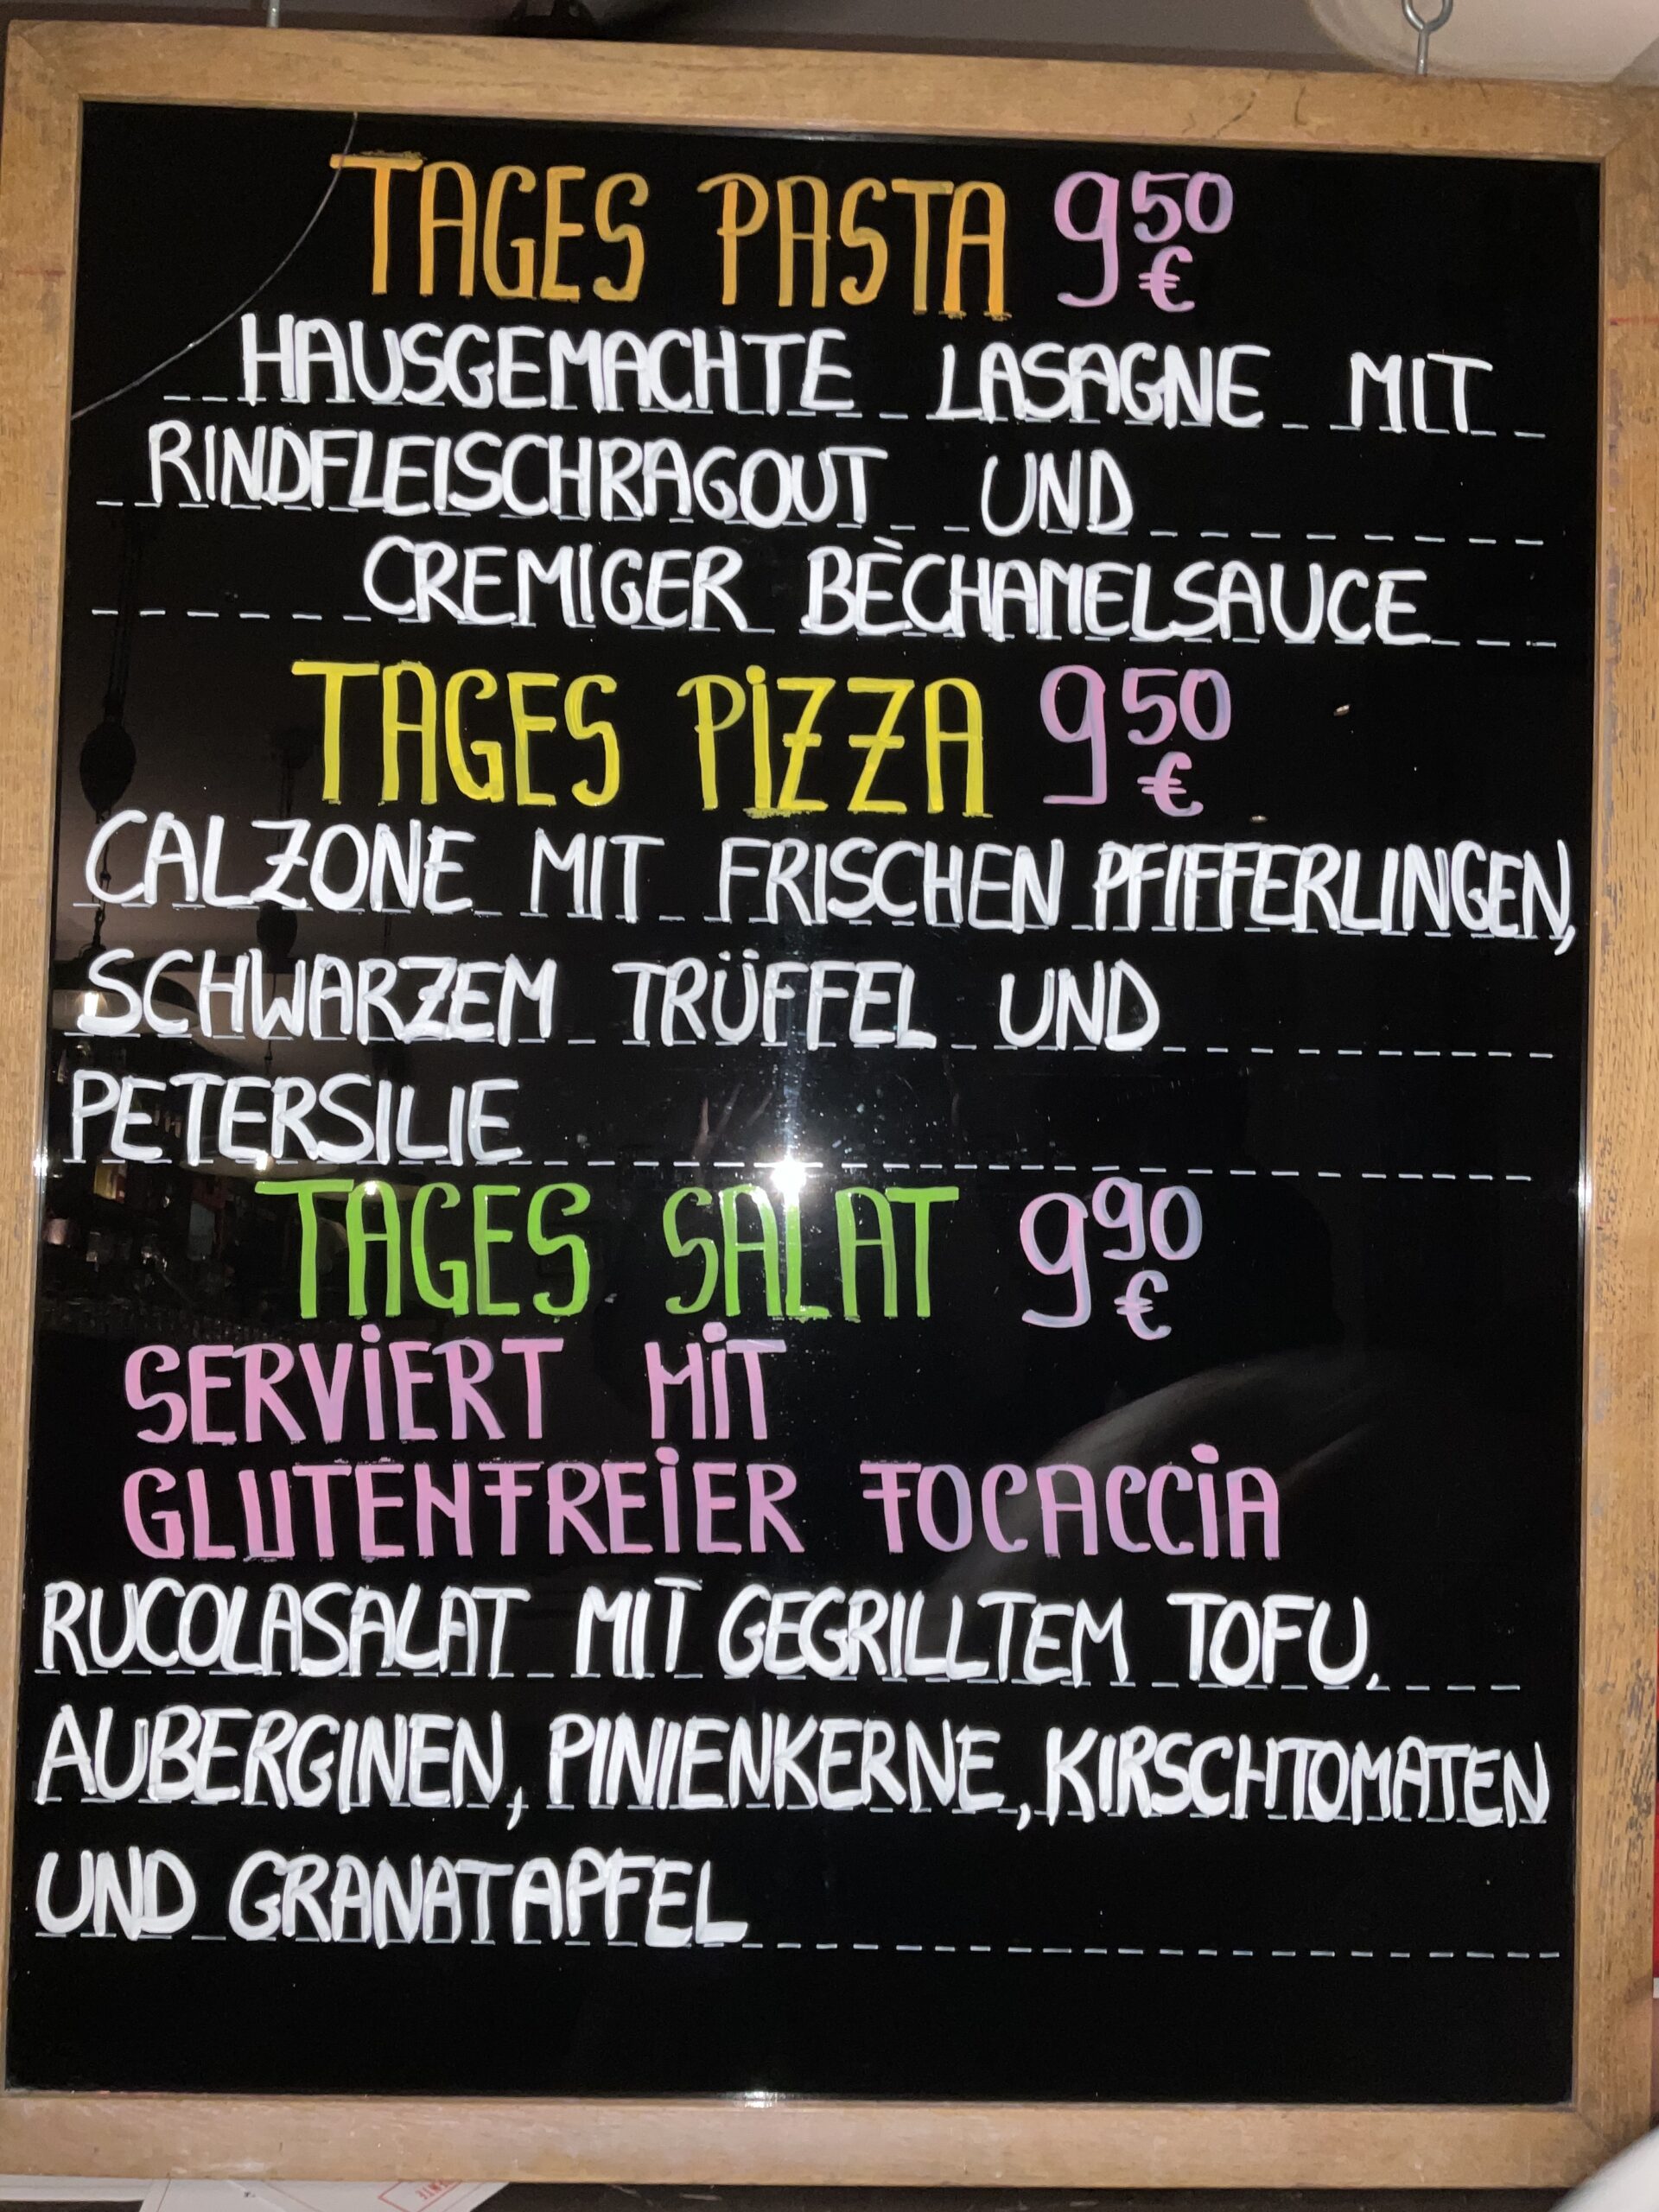 TAGES PASTA 9,50 €
HAUSGEMACHTE LASAGNE MIT
RINDFLEISCHRAGOUT UND
CREMIGER BÈCHAMELSAUCE
TAGES PIZZA 9,50 €
CALZONE MIT FRISCHEN PFIFFERLINGEN,
SCHWARZEM TRÜFFEL UND
PETERSILIE
TAGES SALAT 9,90 €
SERVIERT MIT
GLUTENFREIER FOCACCIA
RUCOLASALAT MIT GEGRILLTEM TOFU,
AUBERGINEN, PINIENKERNE, KIRSCHTOMATEN
UND GRANATAPFEL